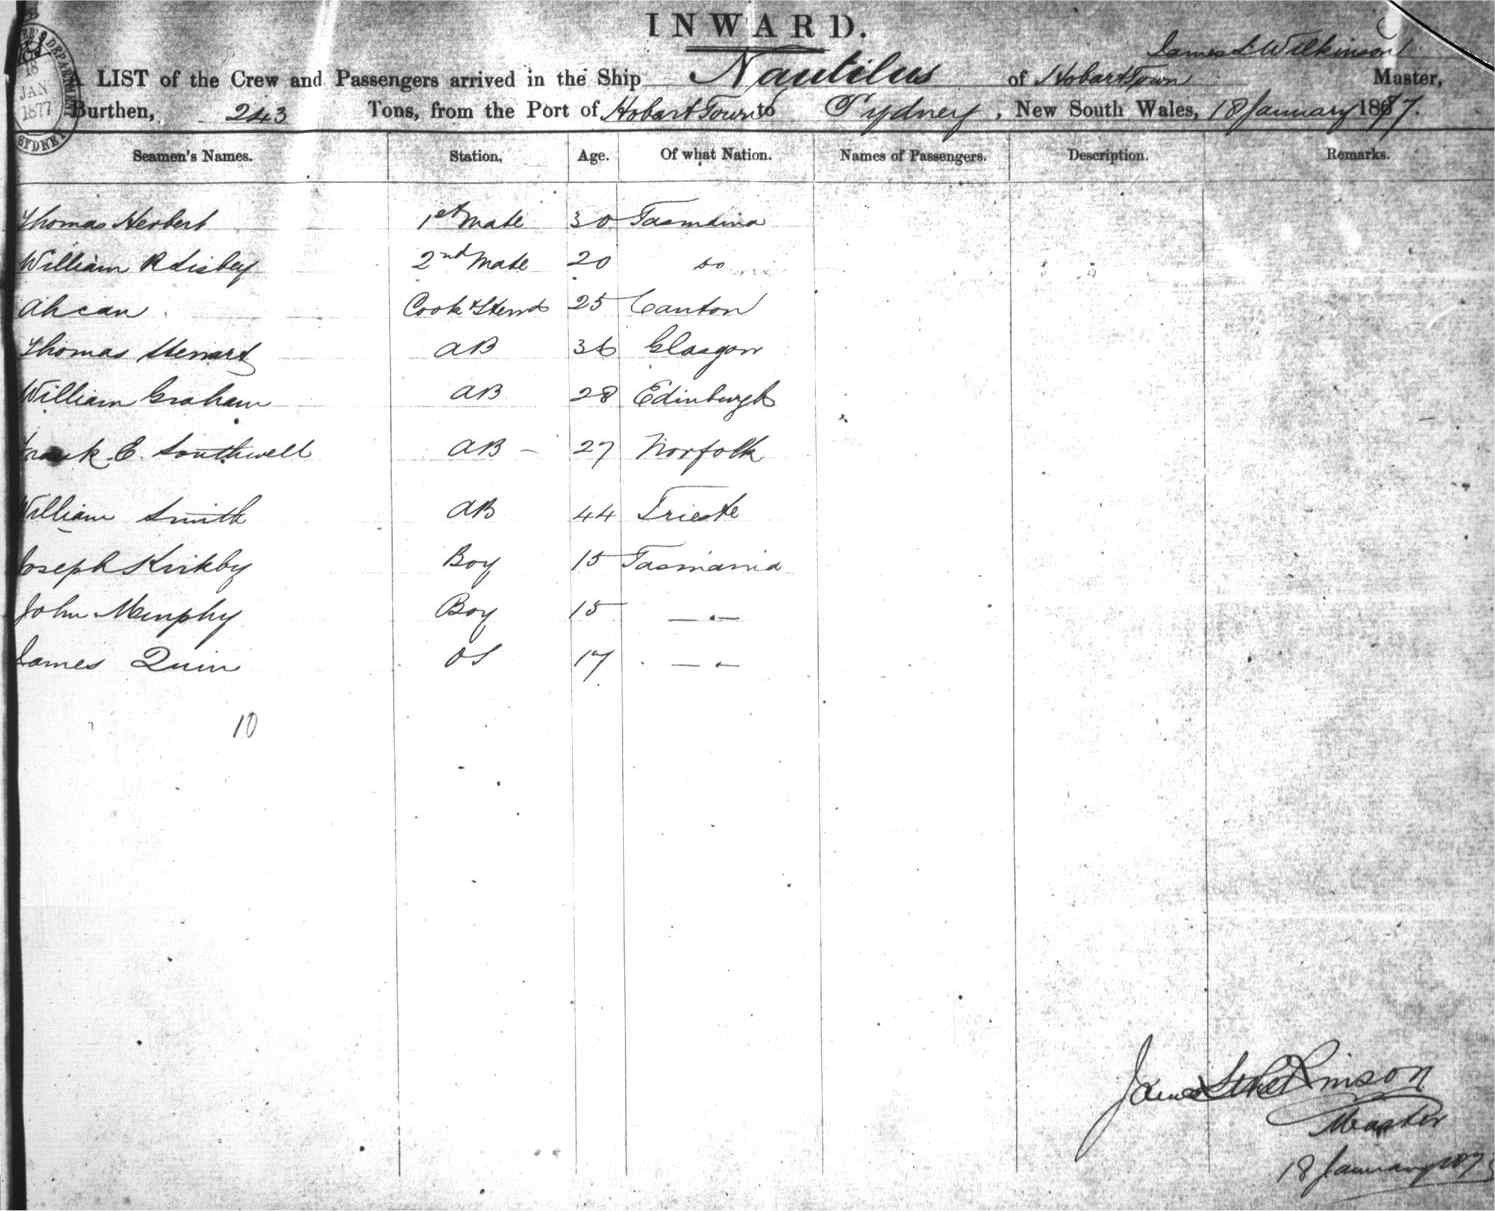 INWARD.
James L Wilkinson
A LIST of the Crew and Passengers arrived in the Ship Nautilus of Hobart Town Master,
Burthen, 243 Tons, from the Port of Hobart Town to Sydney, New South Wales, 18 January 1877.
18
JAN
1877
SYDNEY
Seamen's Names. Station, Age. Of what Nation. Names of Passengers. Description. Remarks.
Thomas Herbert 1st Mate 30 Tasmania
William R Lisbey 2nd Mate 20 do
Ahcan Cook & Stewd 25 Canton
Thomas Stewart AB 36 Glasgow
William Graham AB 28 Edinburgh
Frank E. Southwell AB - 27 Norfolk
William Smith AB 44 Trieste
Joseph Kirkby Boy 15 Tasmania
John Murphy Boy 15 — " —
James Quin OS 17 — " —
10
James L Wilkinson
Master
18 January 1877